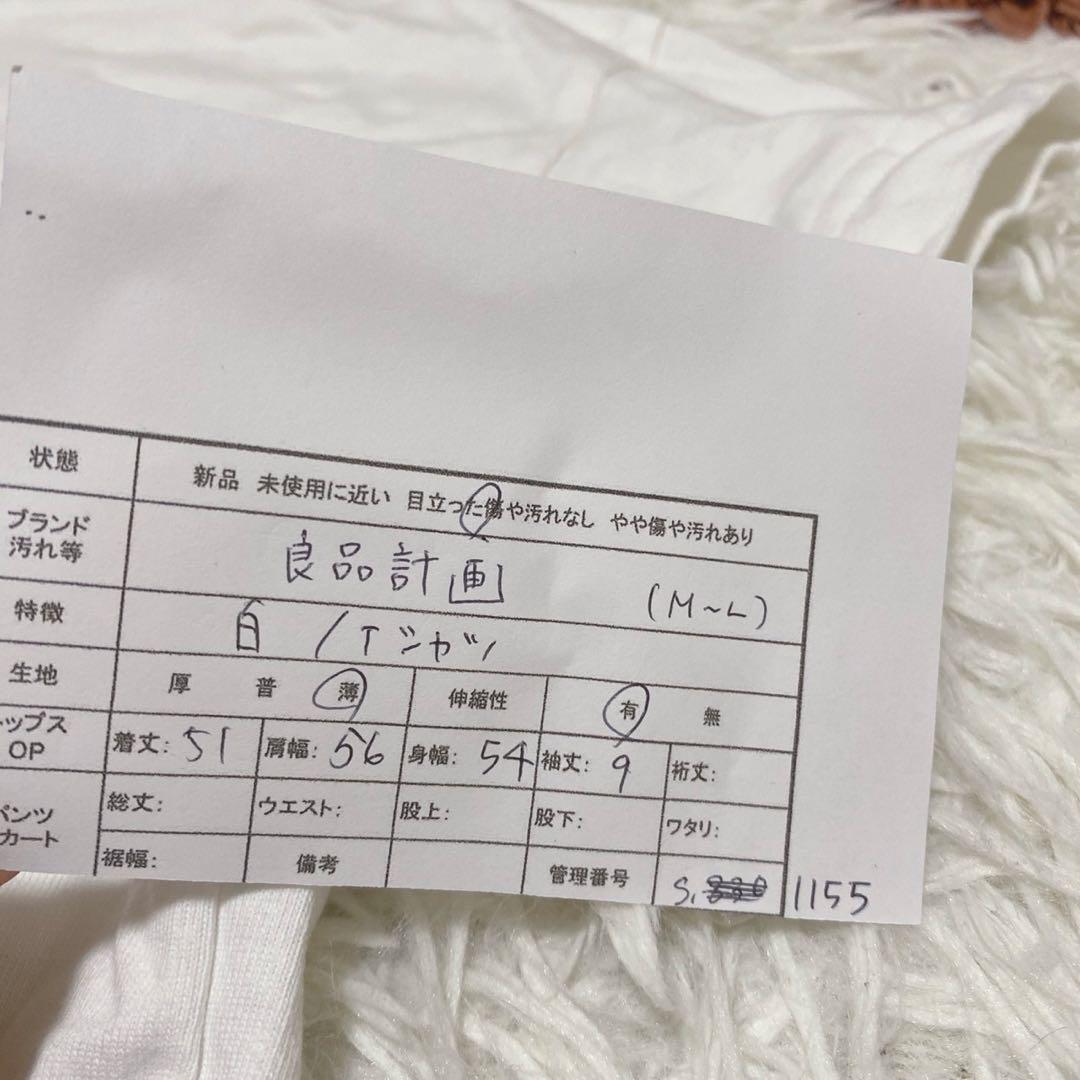 状態 新品 未使用に近い 目立った傷や汚れなし やや傷や汚れあり
ブランド
汚れ等 良品計画 (M~L)
特徴 白 / Tシャツ
生地 厚 普 薄 伸縮性 有 無
ップス
OP 着丈: 51 肩幅: 56 身幅: 54 袖丈: 9 裄丈:
パンツ
カート 総丈: ウエスト: 股上: 股下: ワタリ:
裾幅: 備考 管理番号 S, 1155